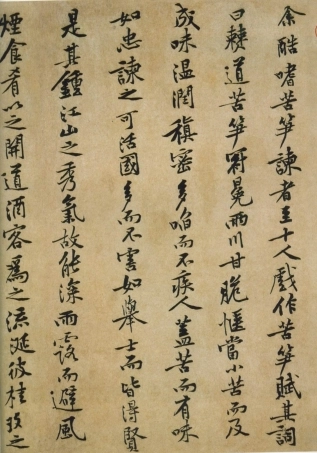 余酷嗜苦笋諫者至十人戲作苦笋賦其詞
曰僰道苦笋冠冕兩川甘脆愜當小苦而及
成味溫潤縝密多啗而不疾人蓋苦而有味
如忠諫之可活國多而不害如舉士而皆得賢
是其鍾江山之秀氣故能深雨露而避風
煙食肴以之開道酒客爲之流涎彼桂玫之